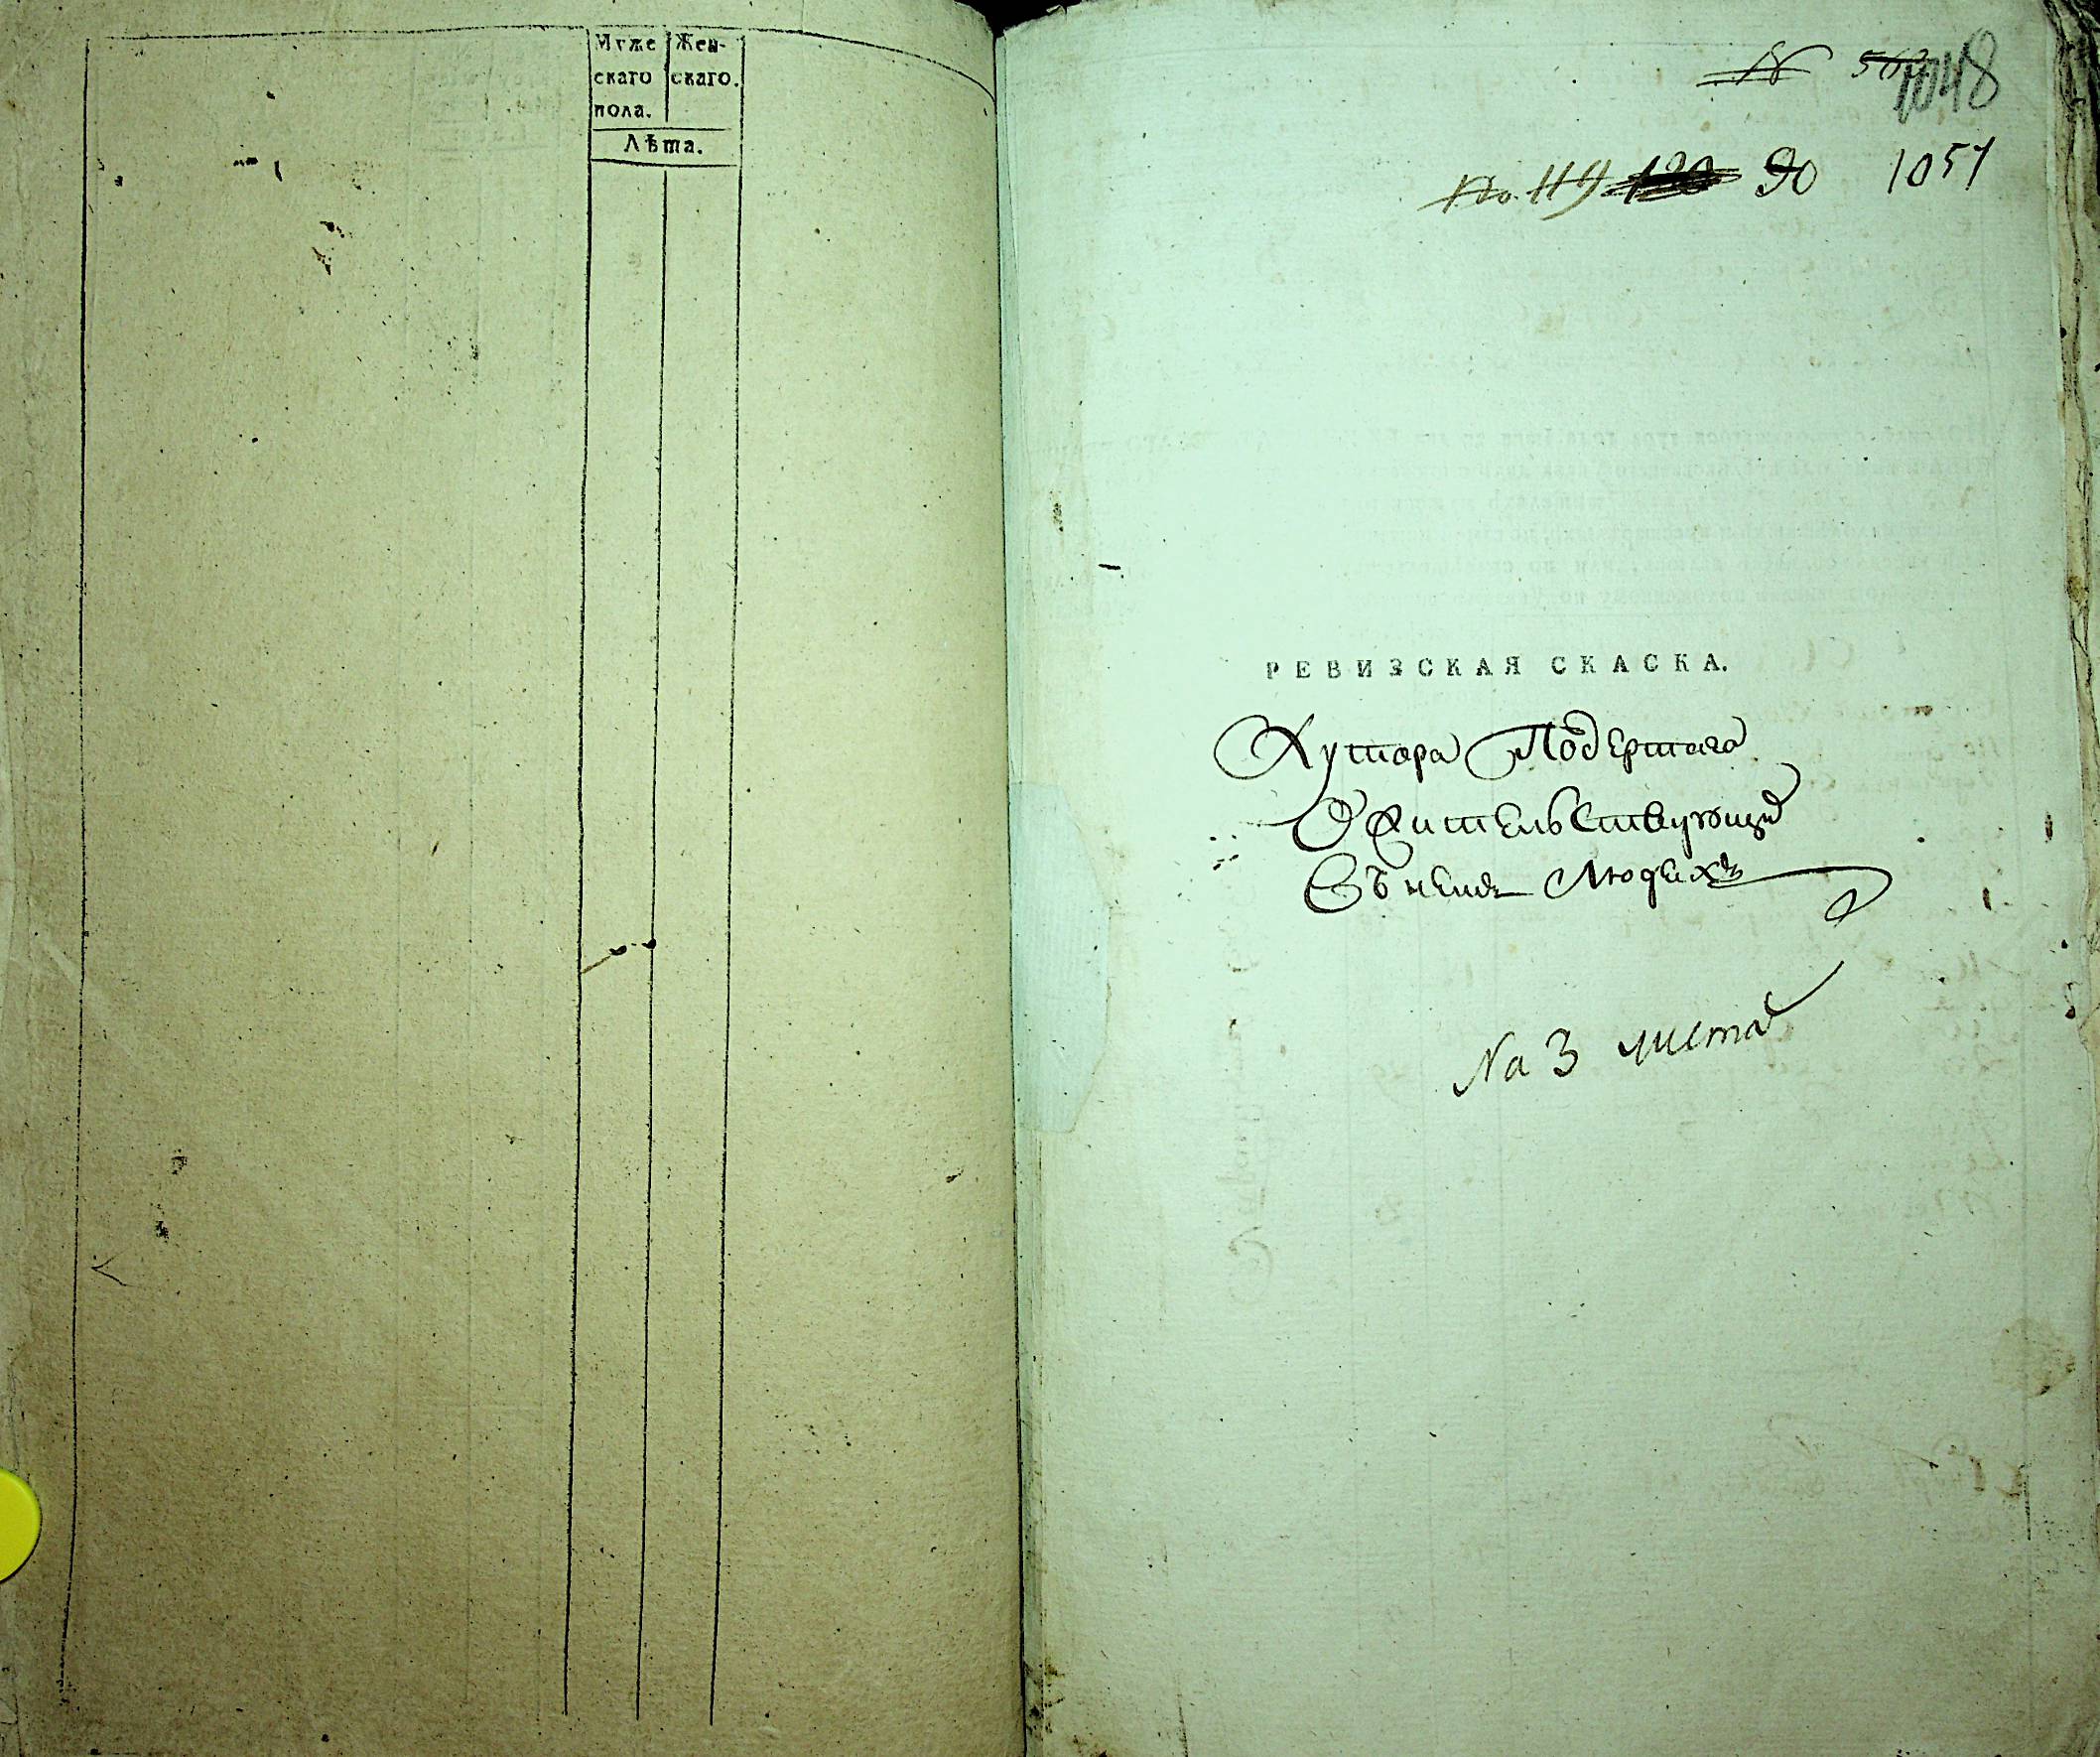 Муже Жен-
скаго скаго.
пола.
Лѣта.
N 563 1048
No. 119 120 90 1051
РЕВИЗСКАЯ СКАСКА.
Хутора Подертаго
О Жительствующих
Въ немъ Людехъ
На 3 листах